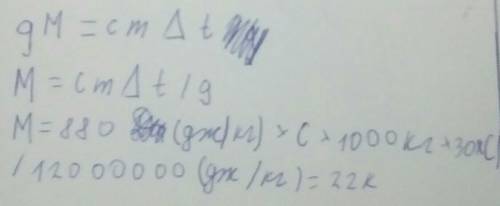 qM = cm Δ t
M = cm Δ t / g
M = 880 (дж/кг) × C × 1000 кг × 30×C)
/ 12000000 (дж/кг) = 22к